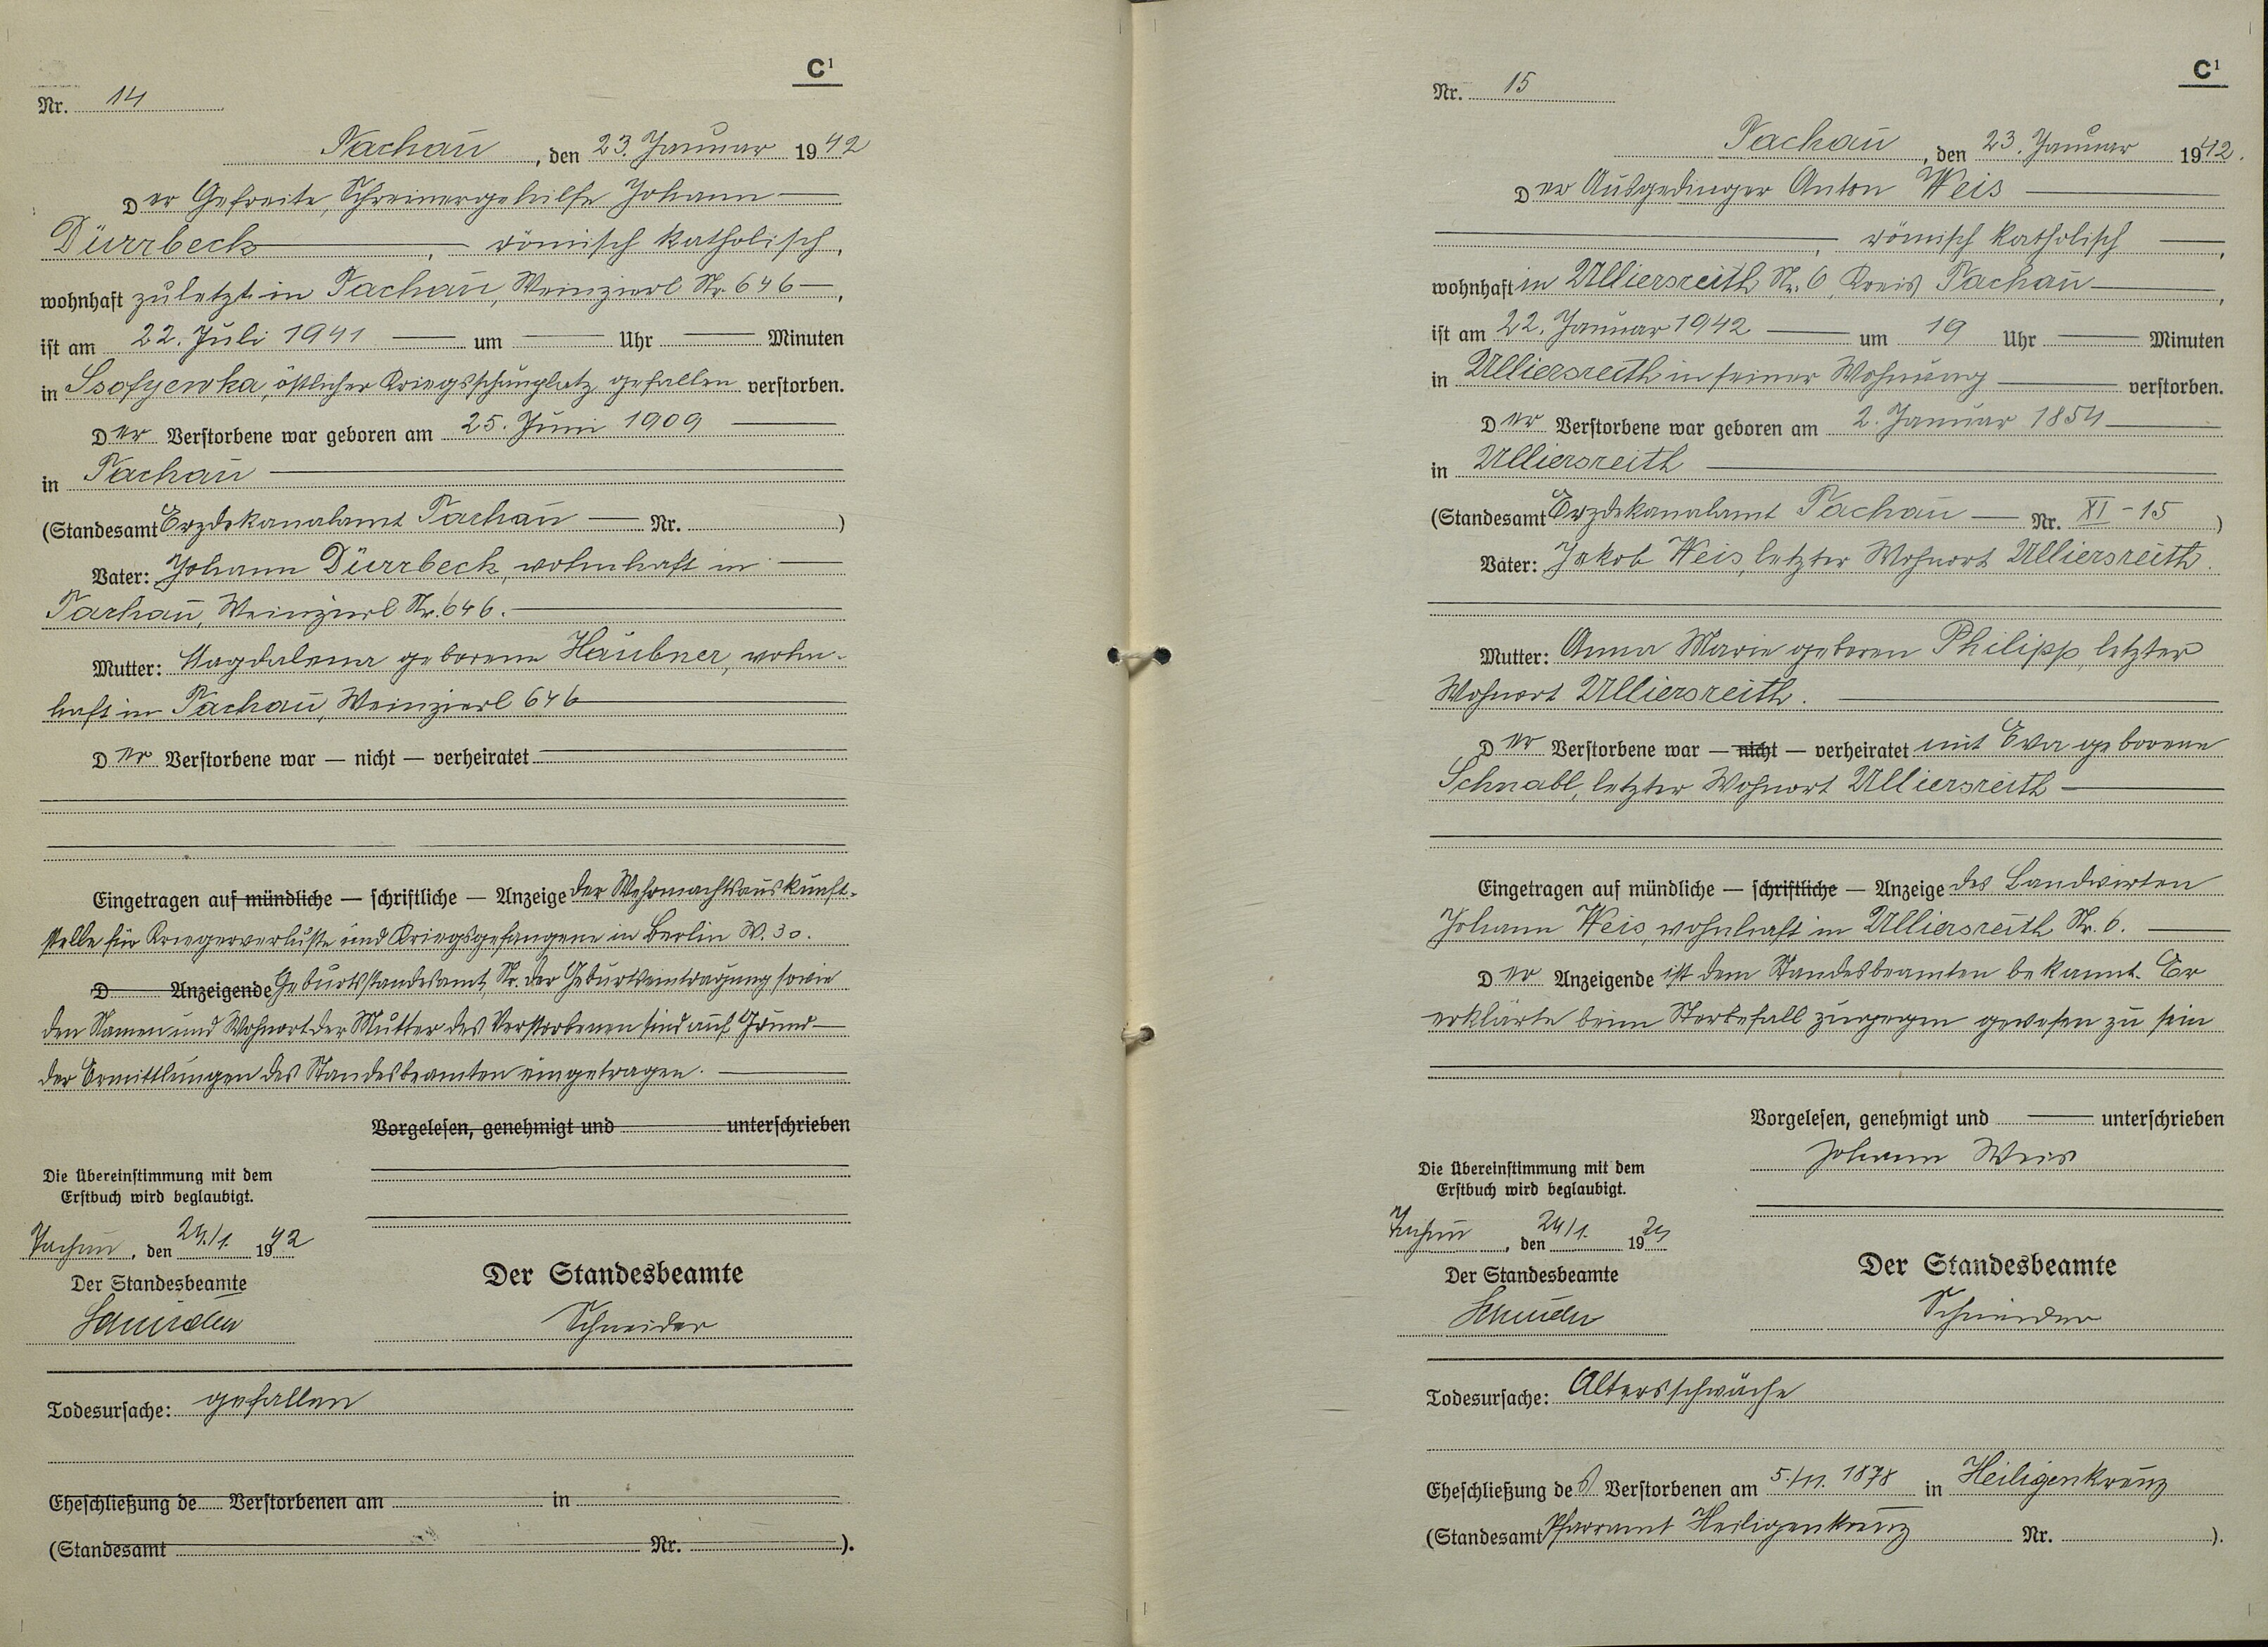 C¹
Nr. 14
Tachau, den 23. Januar 1942
Der Gefreite, Schreinergehilfe Johann
Dürrbeck, römisch katholisch,
wohnhaft zuletzt in Tachau, Weinzierl Nr. 646,
ist am 22. Juli 1941 um Uhr Minuten
in Ssofyewka, östlicher Kriegsschauplatz gefallen verstorben.
Der Verstorbene war geboren am 25. Juni 1909
in Tachau
(Standesamt Erzdekanalamt Tachau Nr. )
Vater: Johann Dürrbeck, wohnhaft in
Tachau, Weinzierl Nr. 646.
Mutter: Magdalena geborene Haubner, wohn-
haft in Tachau, Weinzierl 646
Der Verstorbene war — nicht — verheiratet
Eingetragen auf mündliche — schriftliche — Anzeige der Wehrmachtsauskunft-
stelle für Kriegerverluste und Kriegsgefangene in Berlin W. 30.
D Anzeigende Geburtsstandesamt, Nr. der Geburtseintragung sowie
den Namen und Wohnort der Mutter des Verstorbenen sind auf Grund
der Ermittlungen des Standesbeamten eingetragen.
Vorgelesen, genehmigt und unterschrieben
Die Übereinstimmung mit dem
Erstbuch wird beglaubigt.
Tachau, den 24./1. 1942
Der Standesbeamte
Schneider
Der Standesbeamte
Schneider
Todesursache: gefallen
Eheschließung de Verstorbenen am in
(Standesamt Nr. ).
C¹
Nr. 15
Tachau, den 23. Januar 1942.
Der Ausgedinger Anton Weis
, römisch katholisch,
wohnhaft in Ulliersreith Nr. 6, Kreis Tachau,
ist am 22. Januar 1942 um 19 Uhr Minuten
in Ulliersreith in seiner Wohnung verstorben.
Der Verstorbene war geboren am 2. Januar 1854
in Ulliersreith
(Standesamt Erzdekanalamt Tachau Nr. XI-15)
Vater: Jakob Weis, letzter Wohnort Ulliersreith.
Mutter: Anna Marie geboren Philipp, letzter
Wohnort Ulliersreith.
Der Verstorbene war — nicht — verheiratet mit Eva geborene
Schnabl, letzter Wohnort Ulliersreith
Eingetragen auf mündliche — schriftliche — Anzeige des Landwirten
Johann Weis, wohnhaft in Ulliersreith Nr. 6.
Der Anzeigende ist dem Standesbeamten bekannt. Er
erklärte beim Sterbefall zugegen gewesen zu sein
Vorgelesen, genehmigt und unterschrieben
Johann Weis
Die Übereinstimmung mit dem
Erstbuch wird beglaubigt.
Tachau, den 24/1. 19
Der Standesbeamte
Schneider
Der Standesbeamte
Schneider
Todesursache: Altersschwäche
Eheschließung des Verstorbenen am 5./11. 1878 in Heiligenkreuz
(Standesamt Pfarramt Heiligenkreuz Nr. ).